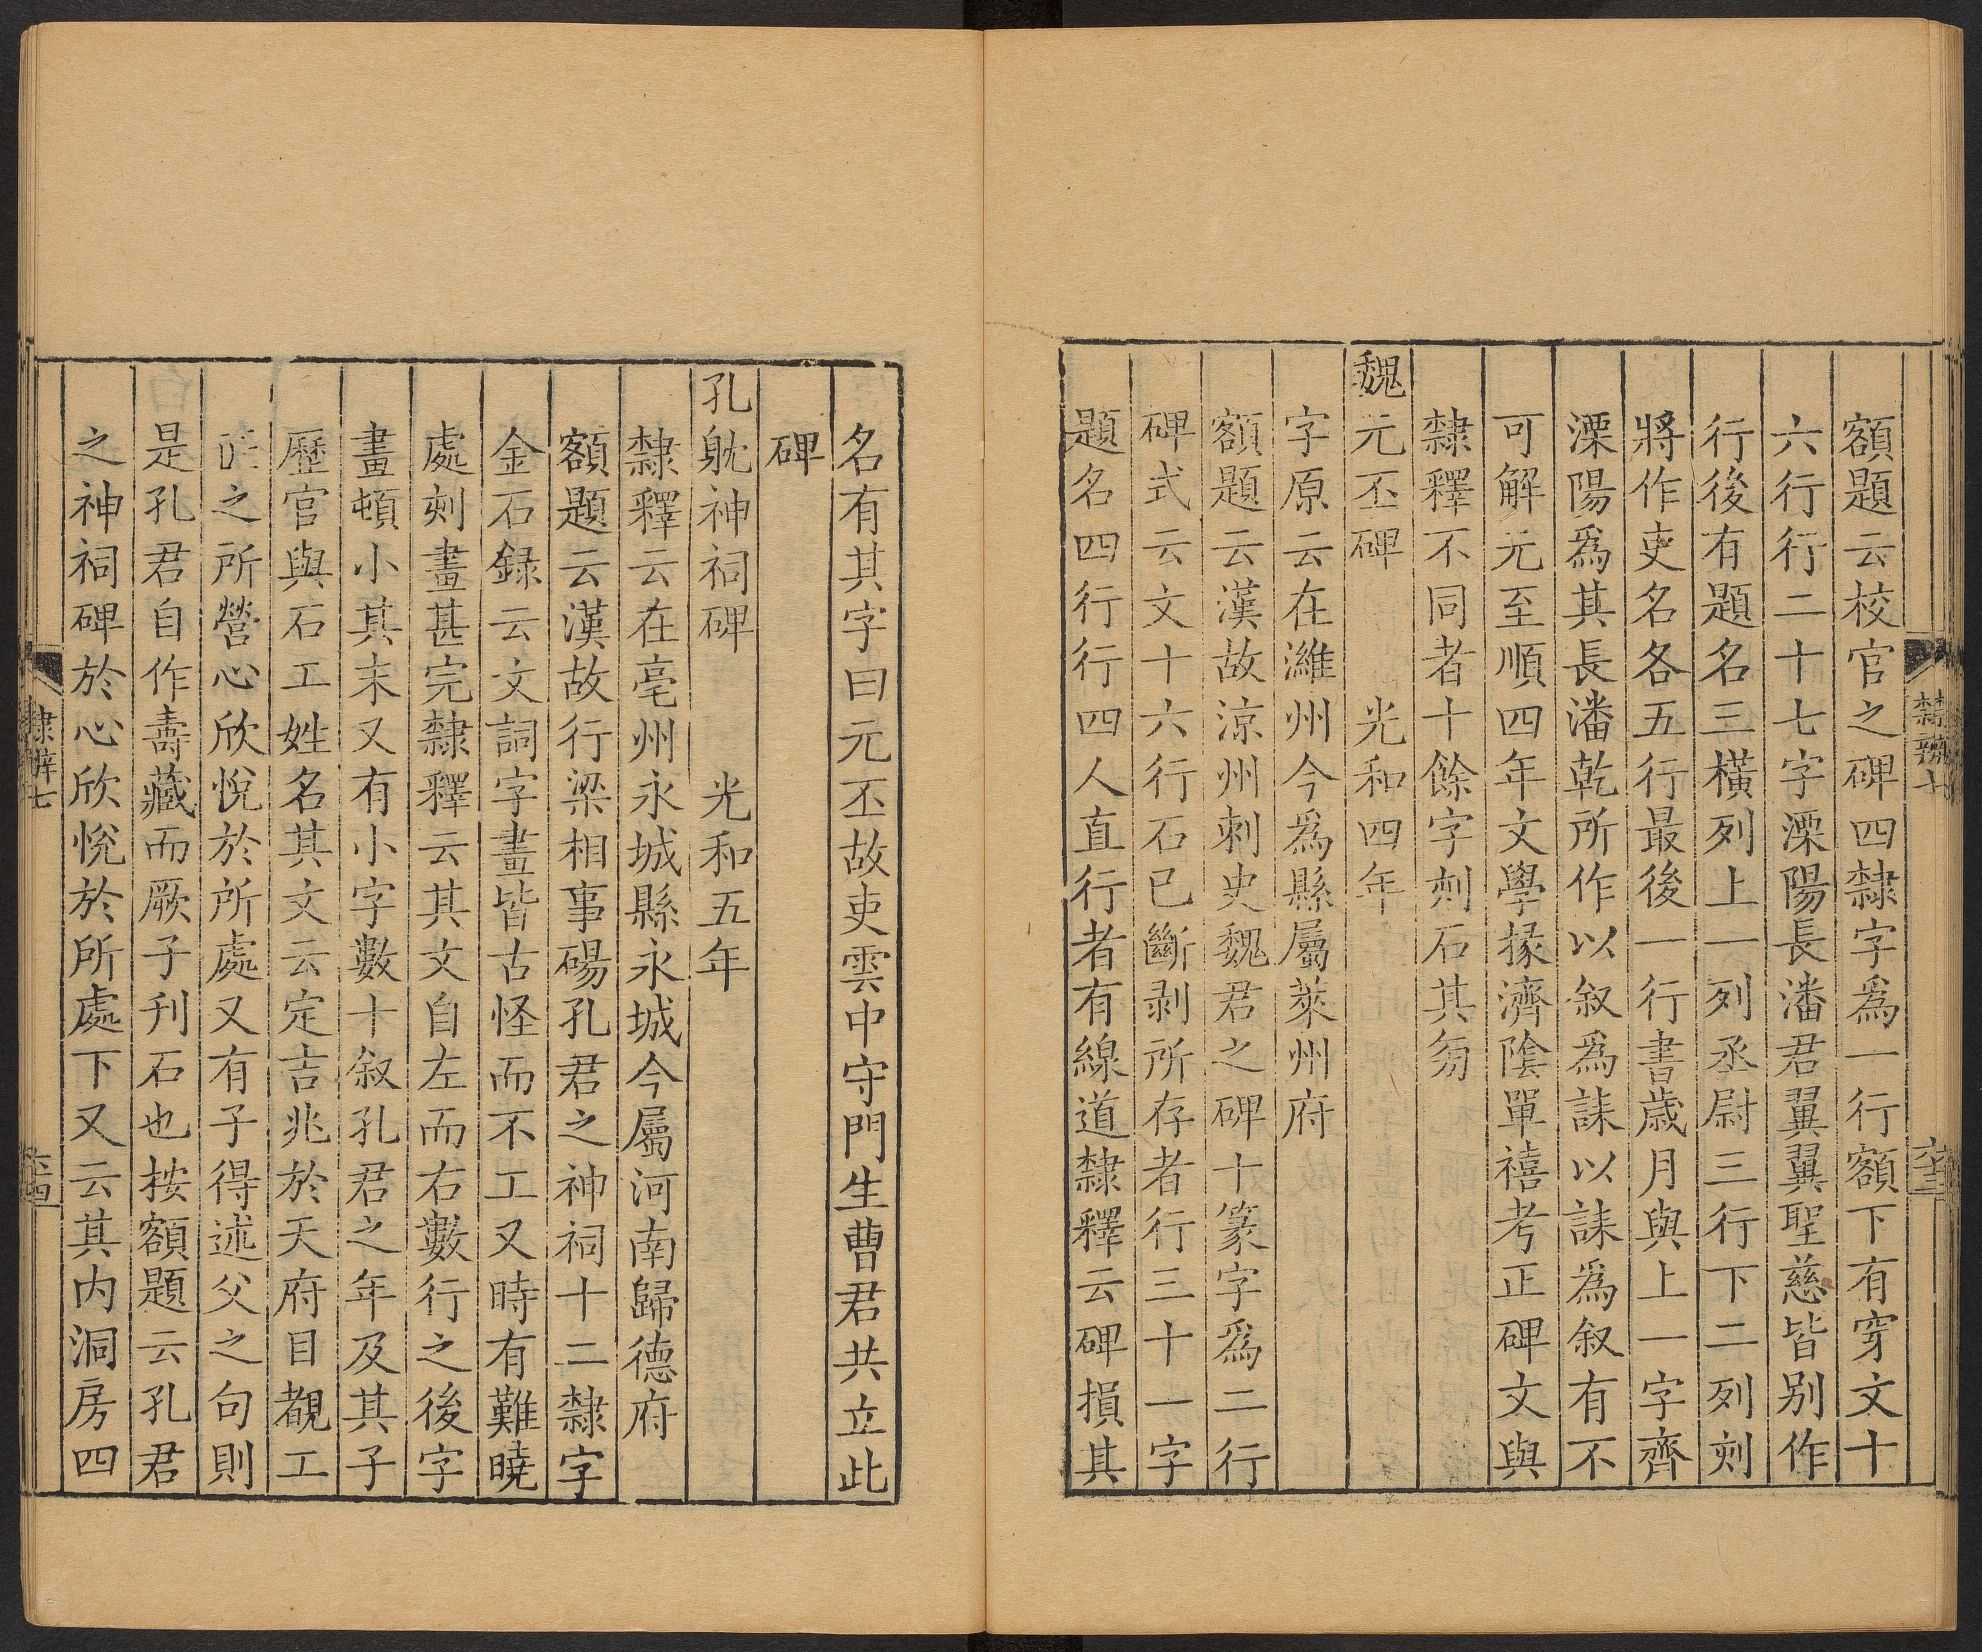 額題云校官之碑四隸字爲一行額下有穿文十
六行行二十七字溧陽長潘君翼翼聖慈皆别作
行後有題名三橫列上一列丞尉三行下二列刻
將作吏名各五行最後一行書歲月與上一字齊
溧陽爲其長潘乾所作以叙爲誄以誄爲叙有不
可解元至順四年文學掾濟陰單禧考正碑文與
隸釋不同者十餘字刻石其匇
魏元丕碑 光和四年
字原云在濰州今爲縣屬萊州府
額題云漢故涼州刺史魏君之碑十篆字爲二行
碑式云文十六行石已斷剥所存者行三十一字
題名四行行四人直行者有線道隸釋云碑損其
名有其字曰元丕故吏雲中守門生曹君共立此
碑
孔耽神祠碑 光和五年
隸釋云在亳州永城縣永城今屬河南歸德府
額題云漢故行梁相事碭孔君之神祠十二隸字
金石録云文詞字畫皆古怪而不工又時有難曉
處刻畫甚完隸釋云其文自左而右數行之後字
畫頓小其末又有小字數十叙孔君之年及其子
歷官與石工姓名其文云定吉兆於天府目覩工
之所營心欣悅於所處又有子得述父之句則
是孔君自作壽藏而厥子刊石也按額題云孔君
之神祠碑於心欣悅於所處下又云其内洞房四
隸辨七